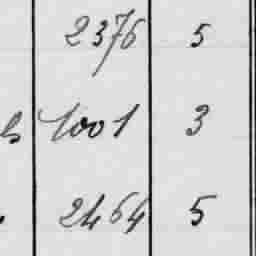 2376 5
1001 3
2464 5